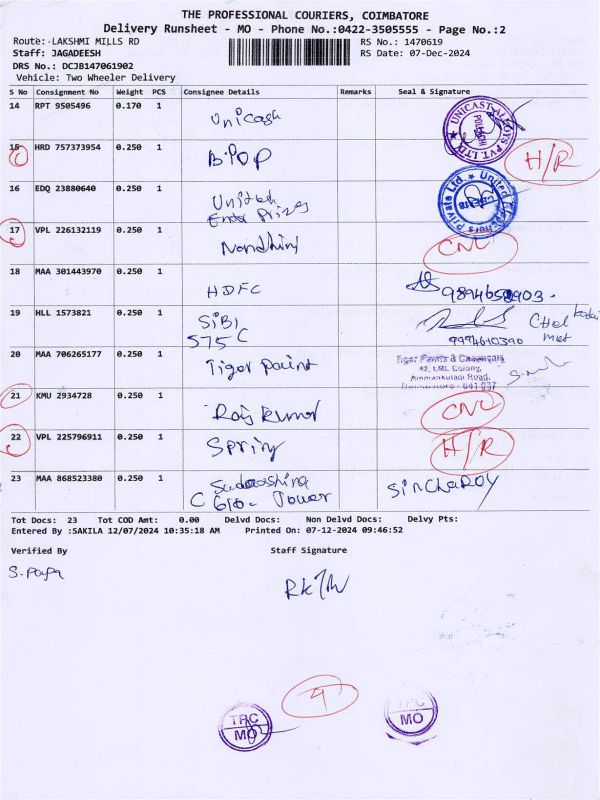 THE PROFESSIONAL COURIERS, COIMBATORE
Delivery Runsheet - MO - Phone No.:0422-3505555 - Page No.:2
Route: LAKSHMI MILLS RD RS No.: 1470619
Staff: JAGADEESH RS Date: 07-Dec-2024
DRS No.: DCJB147061902
Vehicle: Two Wheeler Delivery
S No Consignment No Weight PCS Consignee Details Remarks Seal & Signature
14 RPT 9505496 0.170 1 Unicash UNICAST ALLOYS PVT. LTD
15 HRD 757373954 0.250 1 H/R
16 EDQ 23880640 0.250 1 United Private Ltd. ★ United
17 VPL 226132119 0.250 1 Nandhini CNL
18 MAA 301443970 0.250 1 HDFC
19 HLL 1573821 0.250 1 SiBi
575 C 9994610390
20 MAA 706265177 0.250 1 Tiger Paint Tiger Paints & Chemicals
42, LML Colony,
Ammankulam Road,
21 KMU 2934728 0.250 1 Raj Kumar CNL
22 VPL 225796911 0.250 1 Spring H/R
23 MAA 868523380 0.250 1 Tower
Tot Docs: 23 Tot COD Amt: 0.00 Delvd Docs: Non Delvd Docs: Delvy Pts:
Entered By :SAKILA 12/07/2024 10:35:18 AM Printed On: 07-12-2024 09:46:52
Verified By Staff Signature
TPC
MO
TPC
MO